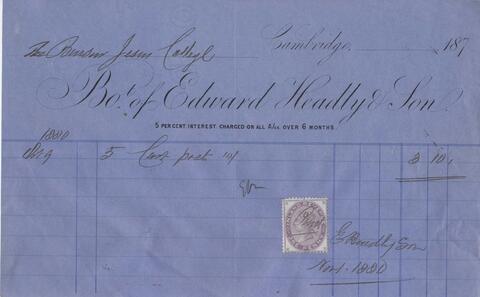 The Bursar Jesus College
Cambridge, 187
Bot. of Edward Headly & Son
5 PERCENT INTEREST CHARGED ON ALL A/cs. OVER 6 MONTHS.
1880
5 Cast post 14/ 3 10
Headly & Son
Nov 1. 1880